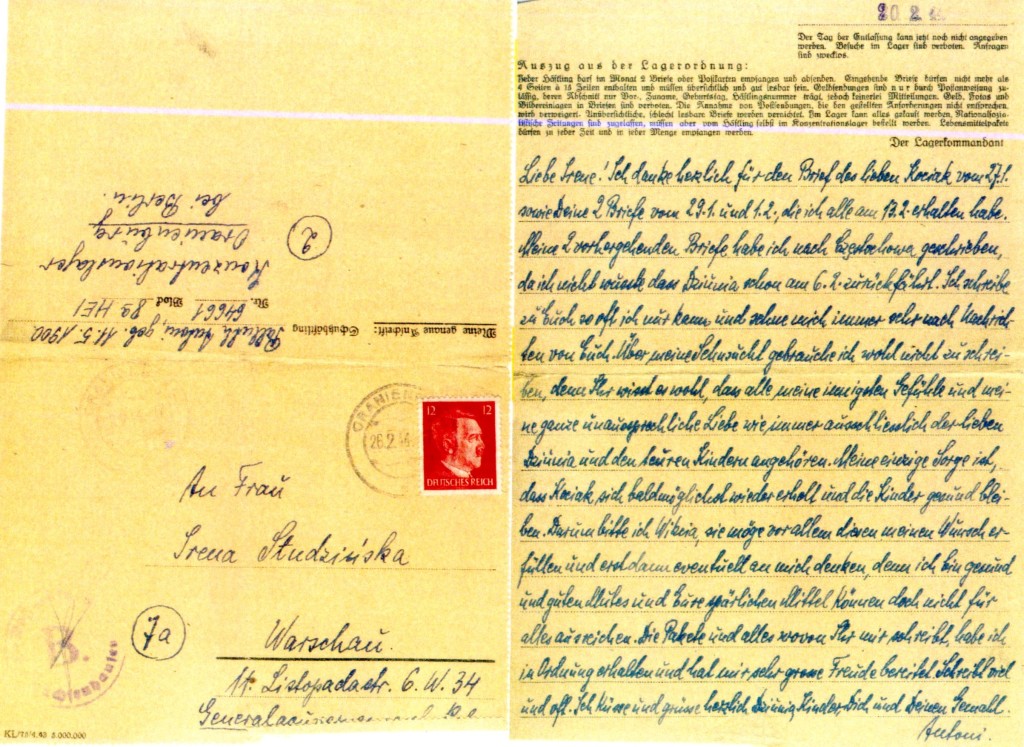 Meine genaue Anschrift:
Schutzhäftling
Antoni, geb. 11.5.1900
Nr. 64661 Block 8a HEI
Konzentrationslager
Oranienburg
bei Berlin.
2
26.2.44
12 12
DEUTSCHES REICH
An Frau
Irena Studzińska
7a
Warschau.
11. Listopadastr. 6. W. 34
B.
KL/75/4.43 5.000.000
20 2
Der Tag der Entlassung kann jetzt noch nicht angegeben
werden. Besuche im Lager sind verboten. Anfragen
sind zwecklos.
Auszug aus der Lagerordnung:
Jeder Häftling darf im Monat 2 Briefe oder Postkarten empfangen und absenden. Eingehende Briefe dürfen nicht mehr als
4 Seiten à 15 Zeilen enthalten und müssen übersichtlich und gut lesbar sein. Geldsendungen sind nur durch Postanweisung zu-
lässig, deren Abschnitt nur Vor-, Zuname, Geburtstag, Häftlingsnummer trägt, jedoch keinerlei Mitteilungen. Geld, Fotos und
Bildereinlagen in Briefen sind verboten. Die Annahme von Postsendungen, die den gestellten Anforderungen nicht entsprechen,
wird verweigert. Unübersichtliche, schlecht lesbare Briefe werden vernichtet. Im Lager kann alles gekauft werden. Nationalsozia-
listische Zeitungen sind zugelassen, müssen aber vom Häftling selbst im Konzentrationslager bestellt werden. Lebensmittelpakete
dürfen zu jeder Zeit und in jeder Menge empfangen werden.
Der Lagerkommandant
Liebe Irene! Ich danke herzlich für den Brief des lieben Koziak vom 27.1.
sowie Deine 2 Briefe vom 29.1. und 1.2., die ich alle am 13.2. erhalten habe.
Meine 2 vorhergehenden Briefe habe ich nach Częstochowa geschrieben,
da ich nicht wusste dass Dziunia schon am 6.2. zurückfährt. Ich schreibe
zu Euch so oft ich nur kann und sehne mich immer sehr nach Nachrich-
ten von Euch. Über meine Sehnsucht gebrauche ich wohl nicht zu schrei-
ben, denn Ihr wisst es wohl, dass alle meine innigsten Gefühle und mei-
ne ganze unaussprechliche Liebe wie immer ausschliesslich der lieben
Dziunia und den teuren Kindern angehören. Meine einzige Sorge ist,
dass Koziak sich baldmöglichst wieder erholt und die Kinder gesund blei-
ben. Darum bitte ich sie möge vor allem diesen meinen Wunsch er-
füllen und erst dann eventuell an mich denken, denn ich bin gesund
und guten Mutes und Eure spärlichen Mittel können doch nicht für
alles ausreichen. Die Pakete und alles wovon Ihr mir schreibt, habe ich
in Ordnung erhalten und hat mir sehr grosse Freude bereitet. Schreibt viel
und oft. Ich küsse und grüsse herzlich Dziunia, Kinder, Dich und Deinen Gemahl.
Antoni.